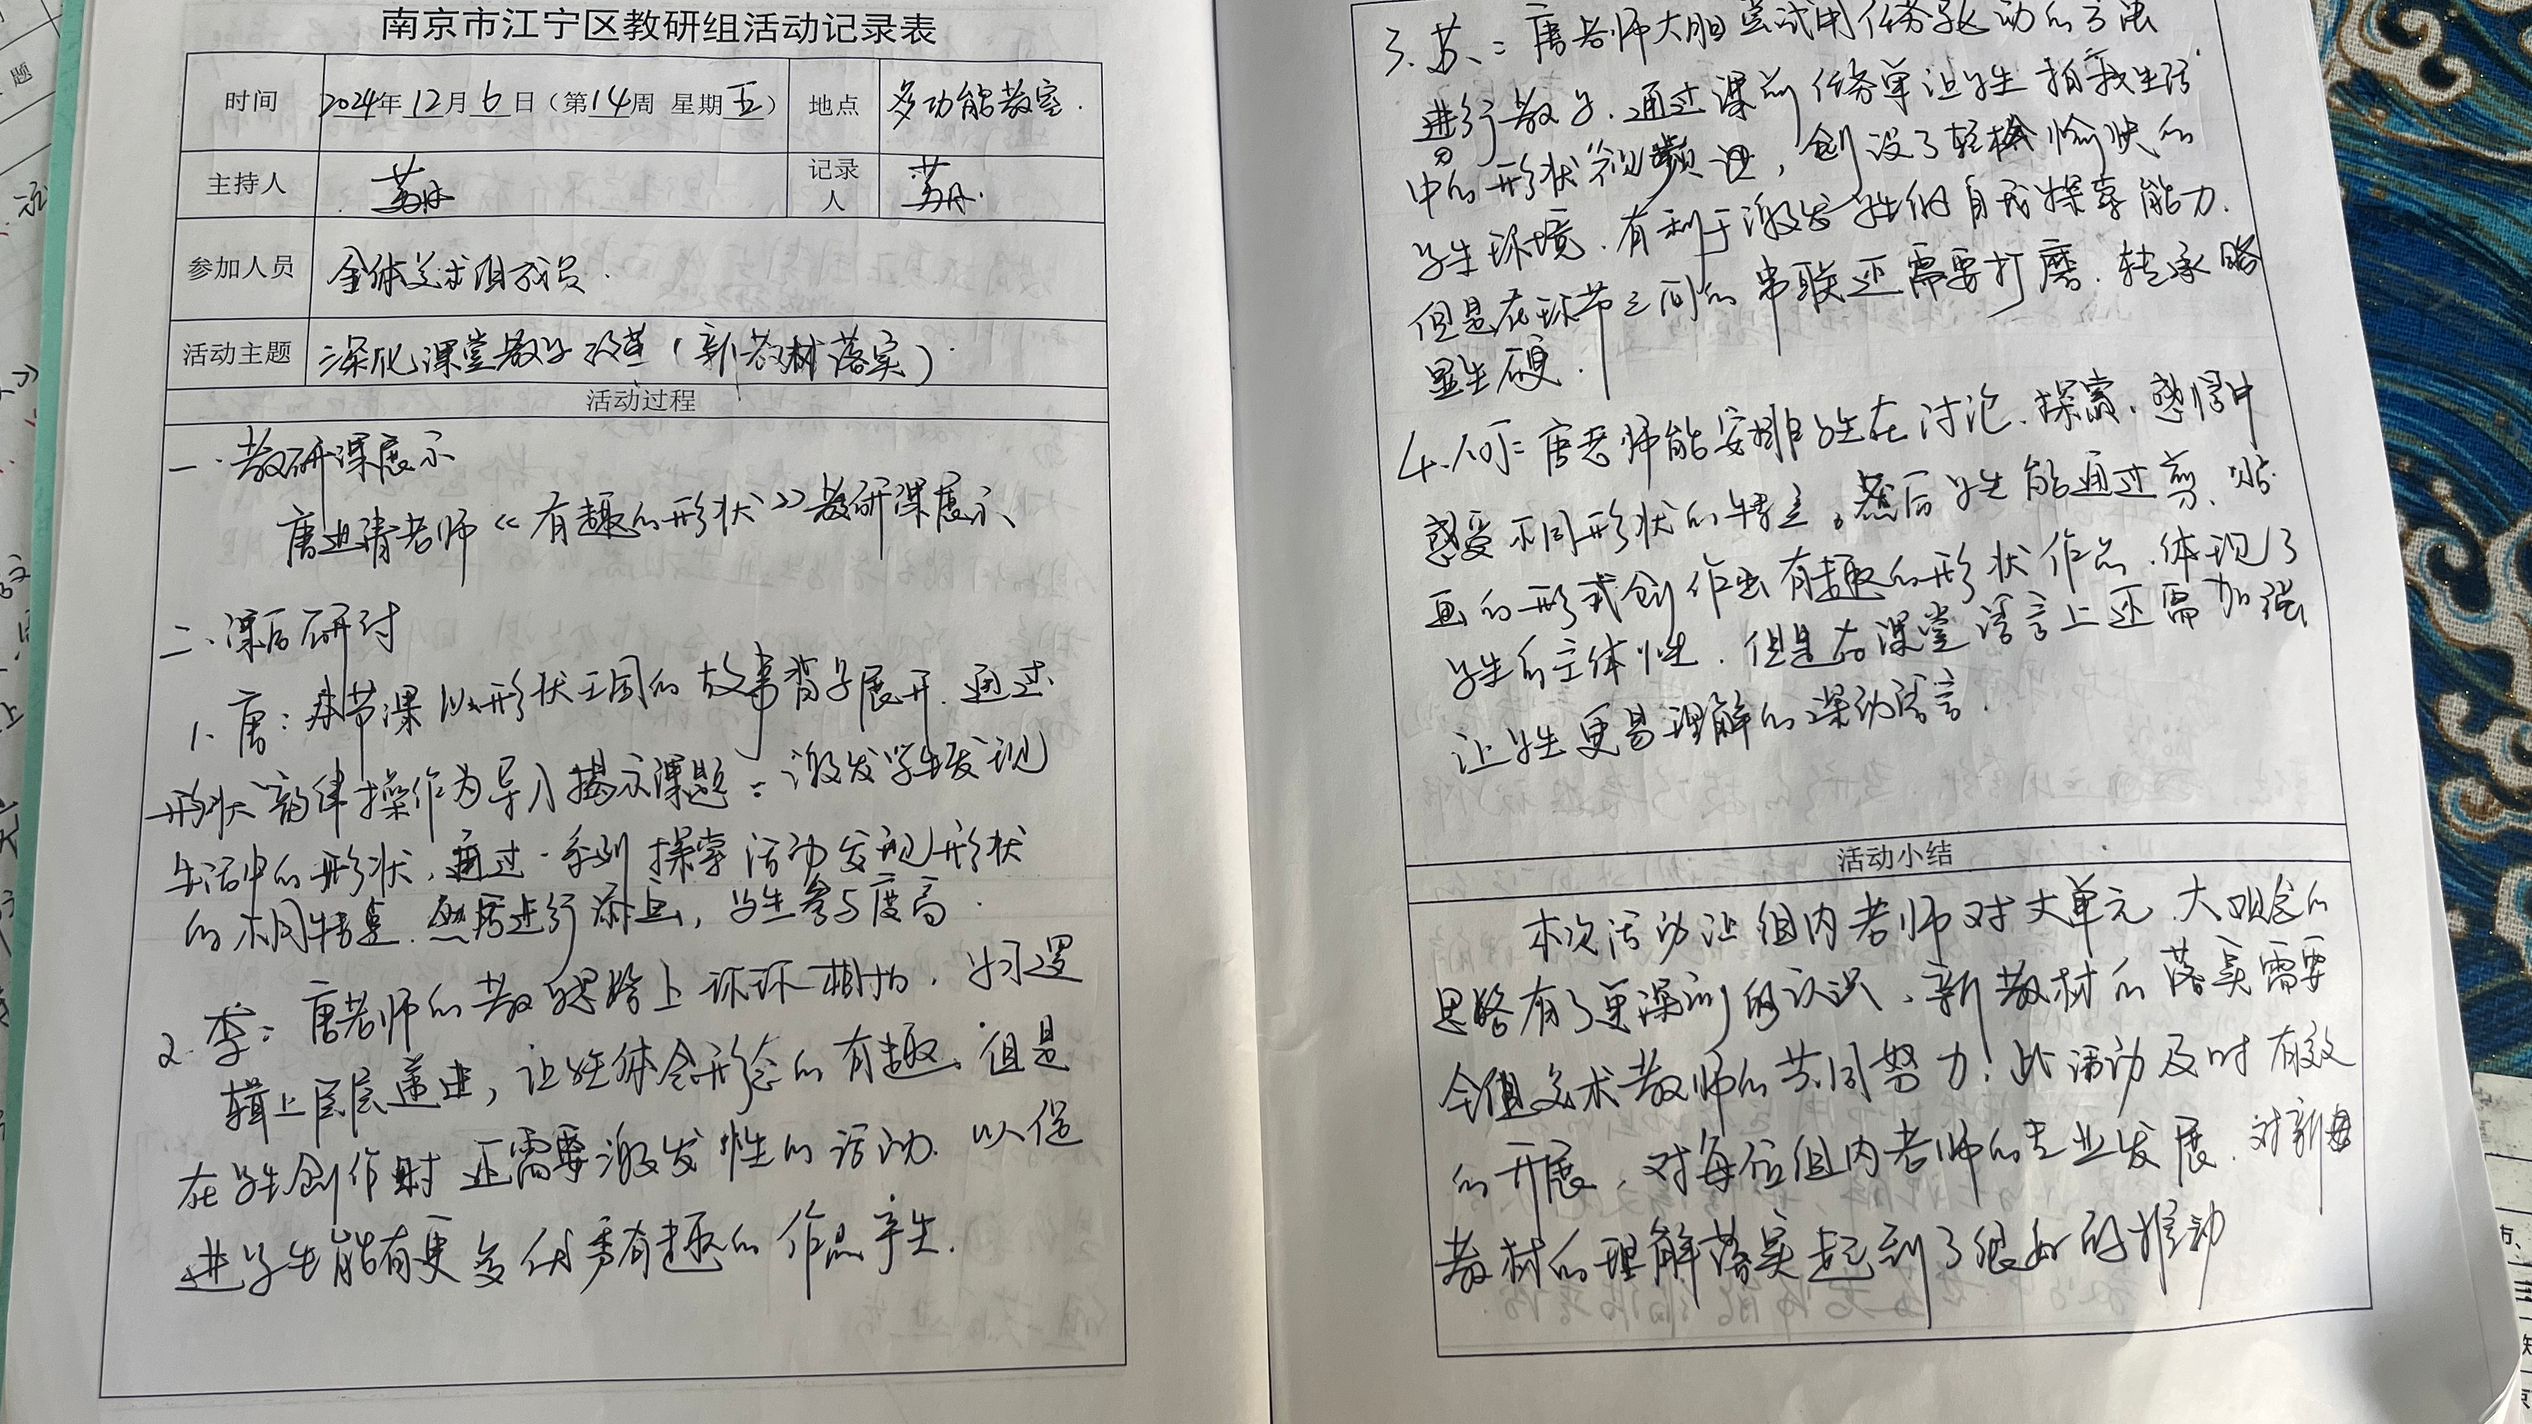 南京市江宁区教研组活动记录表
时间 2024年12月6日（第14周 星期五） 地点 多功能教室.
主持人 苏丹 记录人 苏丹.
参加人员 全体美术组成员.
活动主题 深化课堂教学改革（新教材落实）.
活动过程
一.教研课展示
唐进清老师《有趣的形状》教研课展示
二、课后研讨
1、唐：本节课以形状王国的故事背景展开.通过
形状韵律操作为导入揭示课题：激发学生发现
生活中的形状，通过一系列探索活动发现形状
的不同特点.然后进行添画，学生参与度高.
2.李：唐老师的教学思路上环环相扣.学习逻
辑上层层递进，让学生体会形态的有趣.但是
在学生创作时还需要激发性的活动.以促
进学生能有更多优秀有趣的作品产生.
3.苏：唐老师大胆尝试用任务驱动的方法
进行教学.通过课前任务单让学生拍摄生活
中的形状视频，创设了轻松愉快的
学生环境.有利于激发学生们的自我探索能力.
但是在环节之间的串联还需要打磨.转承略
显生硬.
4.何：唐老师能安排学生在讨论、探索、感悟中
感受不同形状的特点，然后学生能通过剪、贴
画的形式创作出有趣的形状作品.体现了
学生的立体性.但是在课堂语言上还需加强
让学生更易理解的课堂语言.
活动小结
本次活动让组内老师对大单元、大观念的
思路有了更深刻的认识，新教材的落实需要
全组美术教师的共同努力！此活动及时有效
的开展，对每位组内老师的专业发展.对新
教材的理解落实起到了很好的推动